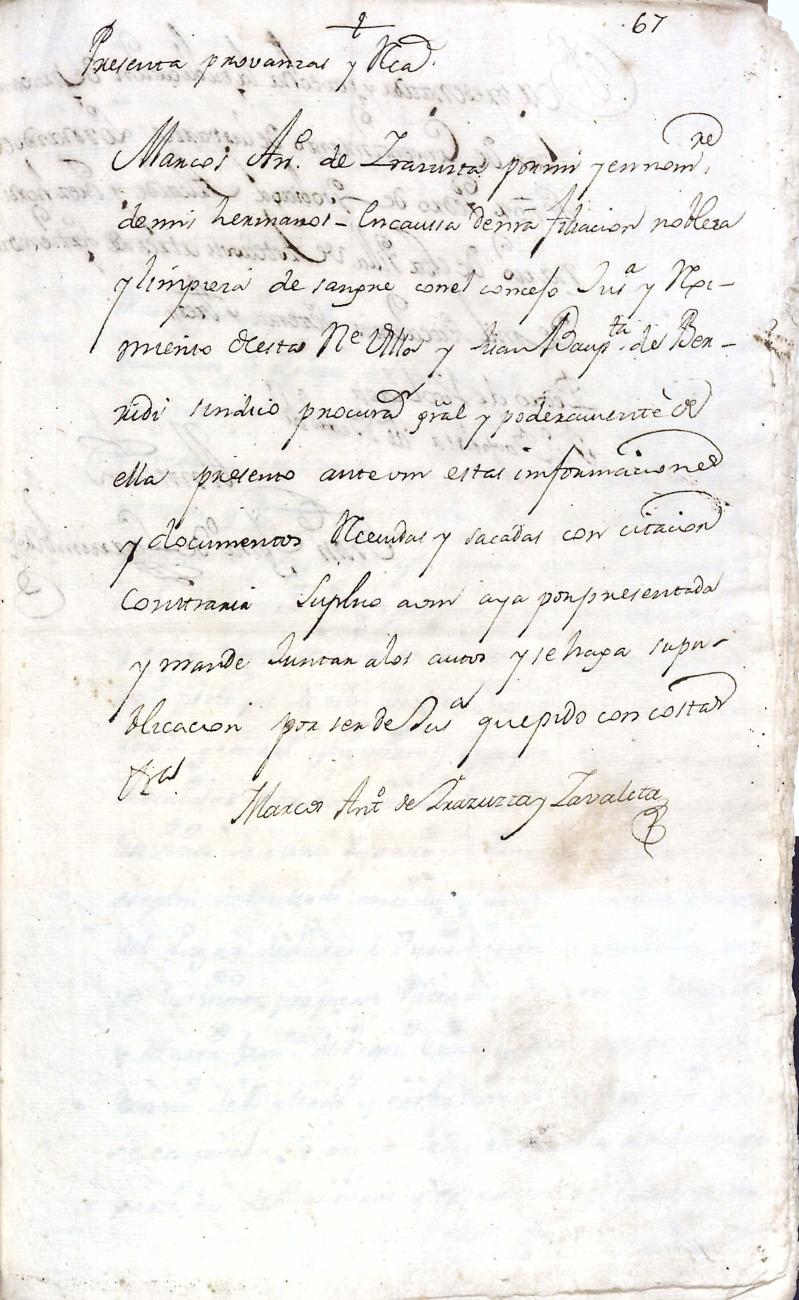 67
Presenta provanzas y Rcad.
Marcos Anº. de Yrazusta por mi y en nomre.
de mis hermanos – En caussa de nrã filiacion nobleza
y limpieza de sangre con el concejo Jusª y Rexi–
miento desta Ne Villa y Juan Bauptta. de Ber–
ridi sindico procurad grãl y poderaviente de
ella presento ante vm estas informaciones
y documentos Rceuidas y sacadas con citacion
Contraria Suplico a vm aya por presentada
y mande Juntar a los autos y se haga su pu–
blicacion por ser de Jusª que pido con costas
&ª
Marcos Antº de Yrazuzta y Zavaleta